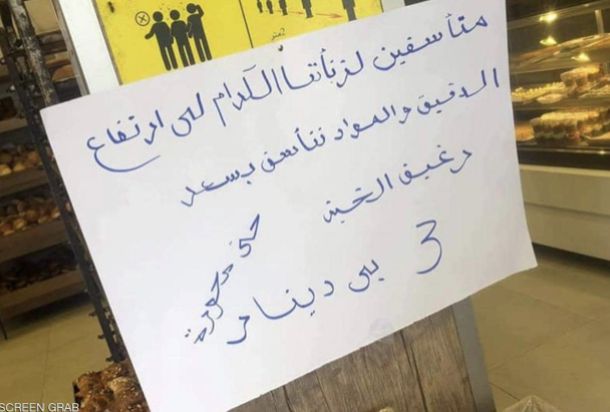 متر
متأسفين لزبائنا الكرام لى ارتفاع
الدقيق والمواد نتأسف بسعر
رغيف الخبز
3 بى دينار
SCREEN GRAB